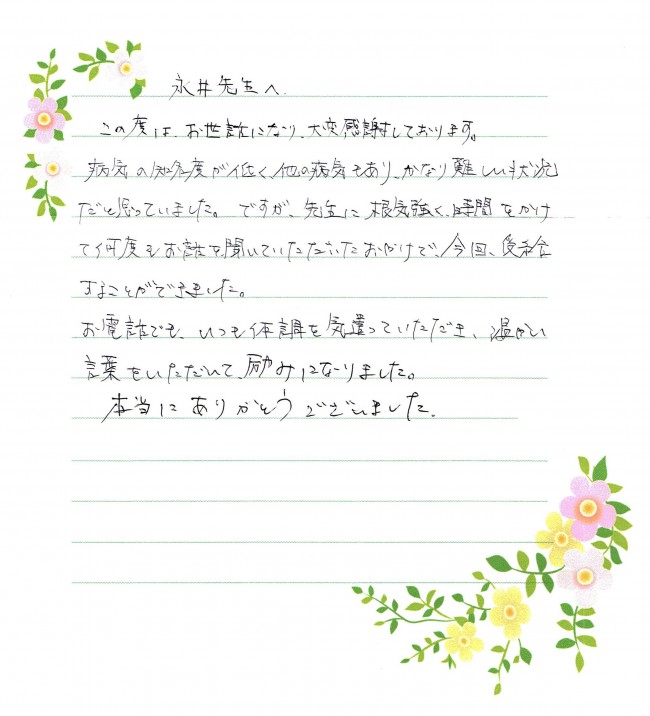 永井先生へ.
この度は、お世話になり、大変感謝しております。
病気の知名度が低く、他の病気もあり、かなり難しい状況
だと思っていました。ですが、先生に根気強く、時間をかけ
て何度もお話を聞いていただいたおかげで、今回、受給
することができました。
お電話でも、いつも体調を気遣っていただき、温かい
言葉をいただいて、励みになりました。
本当にありがとうございました.